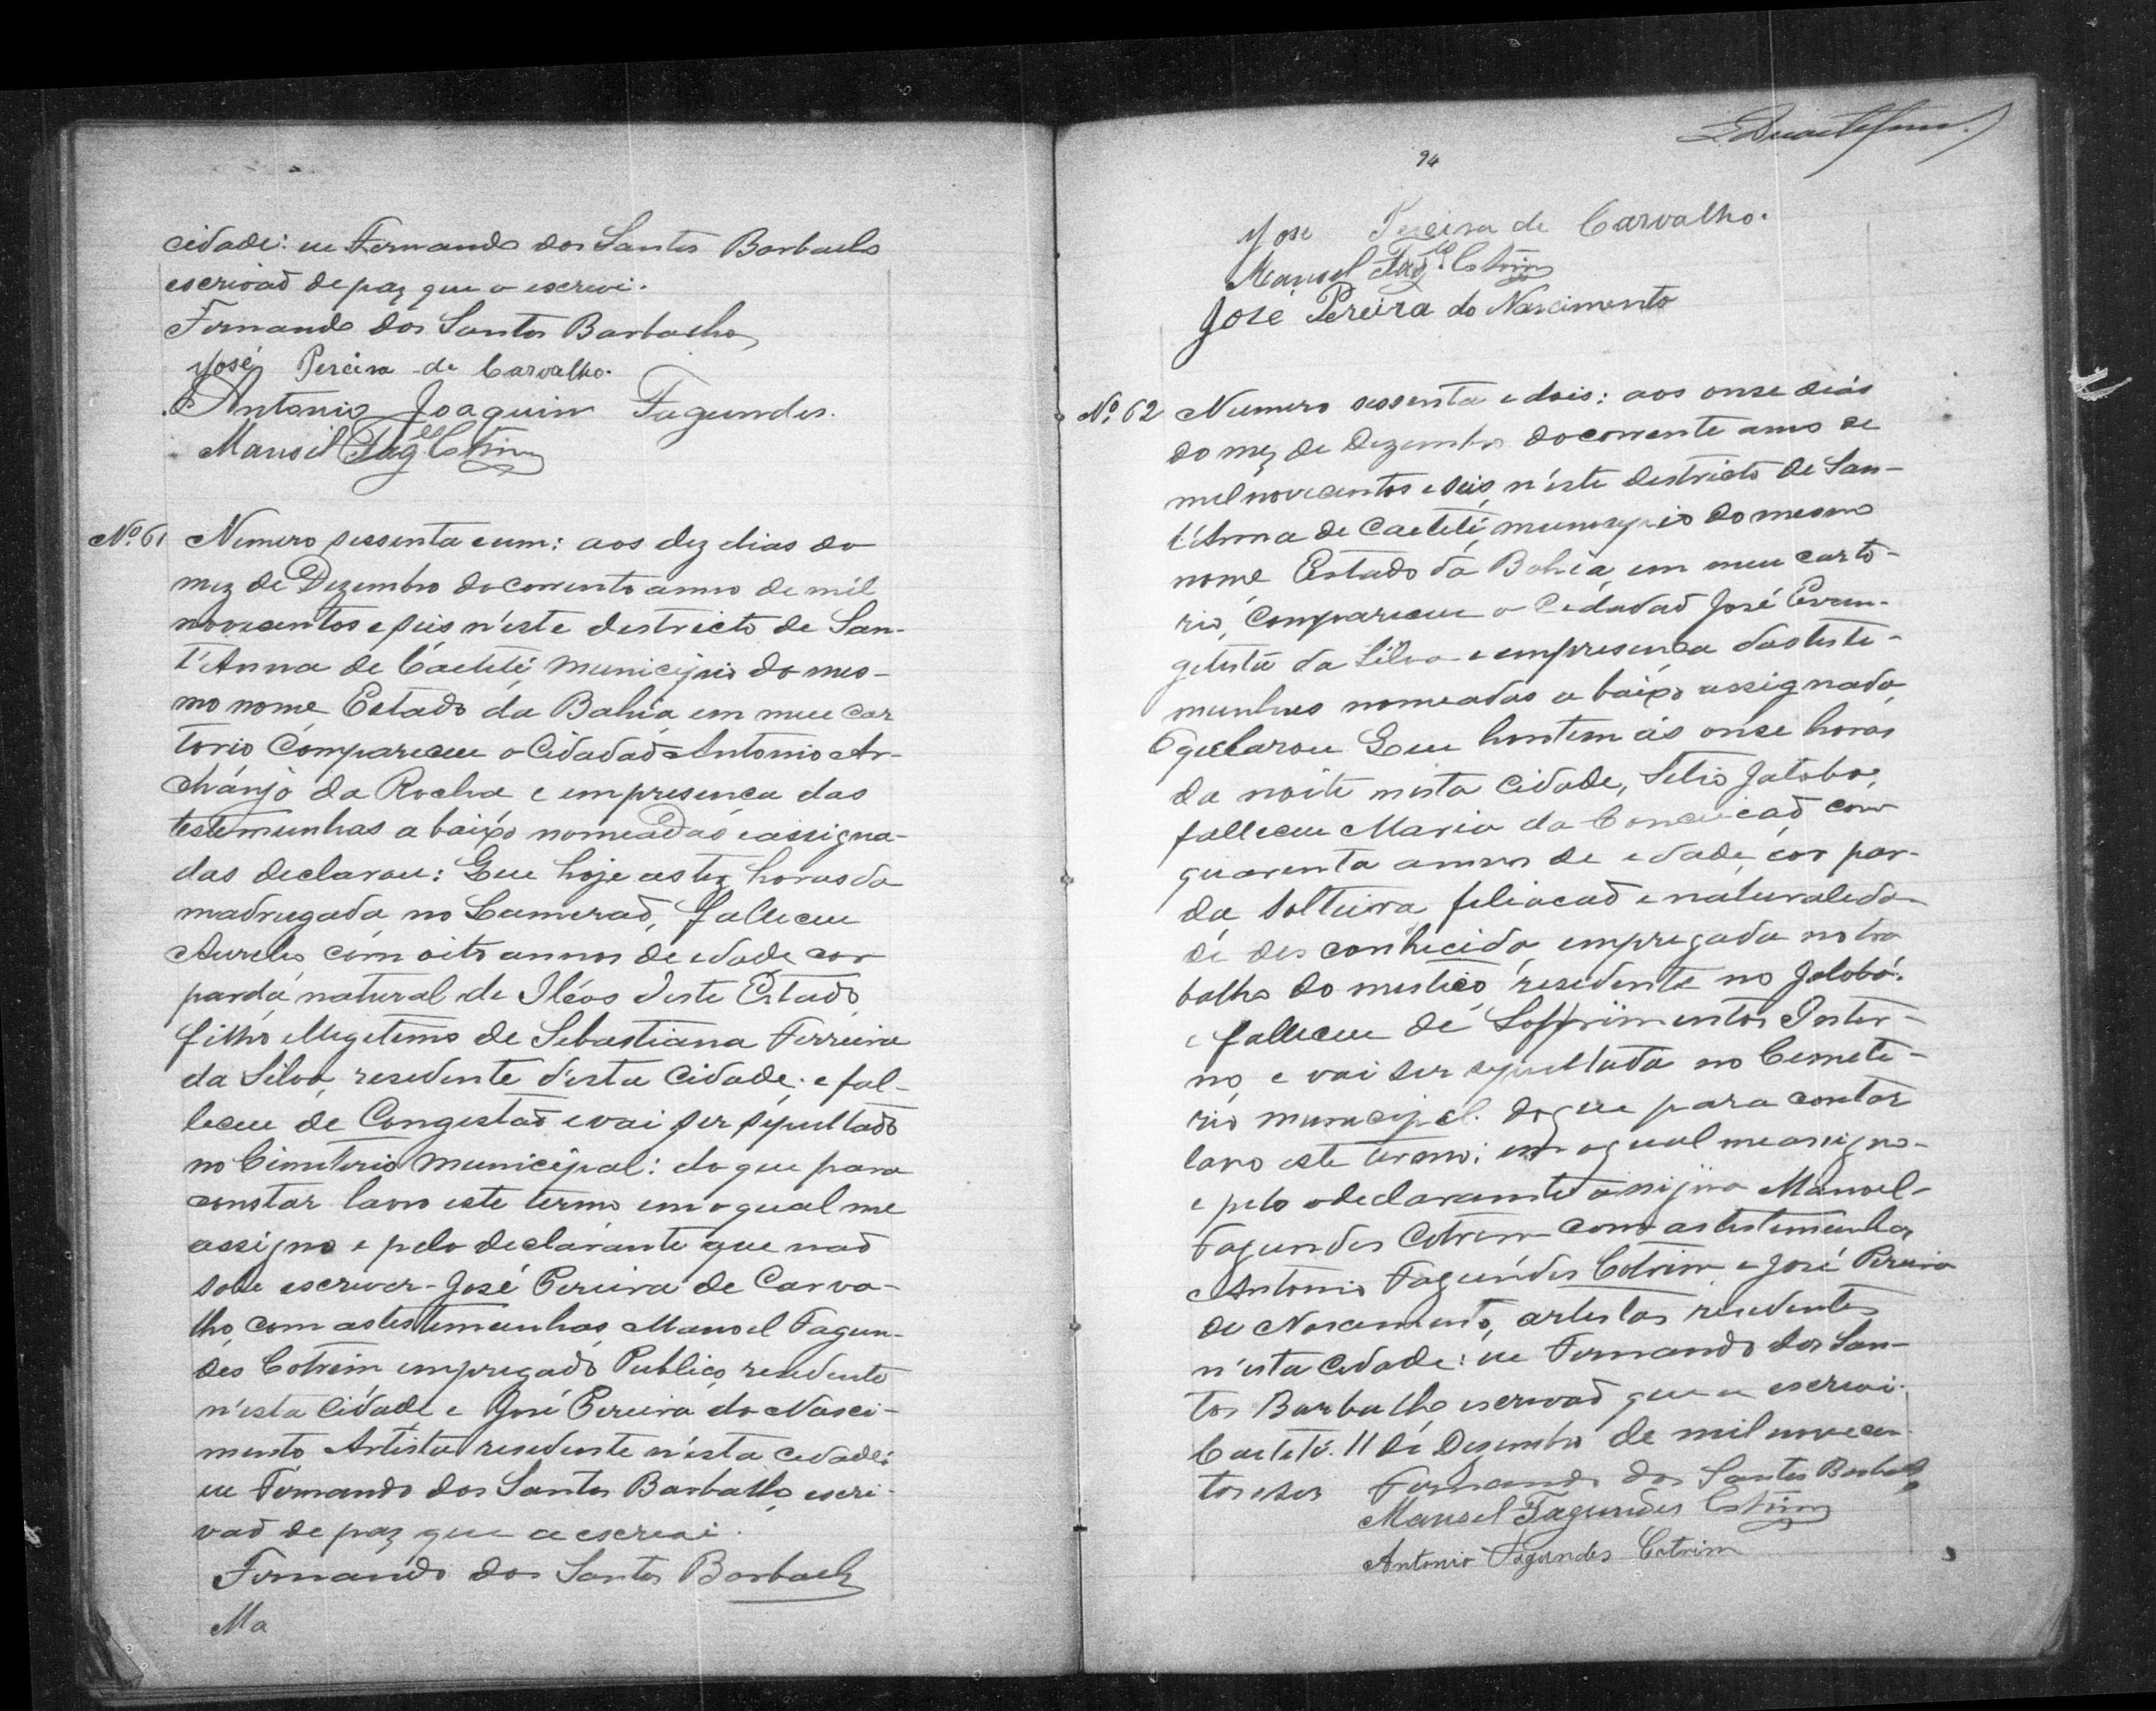 cidade: eu Fernando dos Santos Barbalho
escrivaõ de paz que o escrevi.
Fernando dos Santos Barbalho
José Pereira de Carvalho.
Antonio Joaquim Fagundes.
Manoel Fag.es Cotrim
Nº 61 Numero sessenta e um: aos dez dias do
mez de Dezembro do corrente anno de mil
novecentos e seis n'este destricto de San-
t'Anna de Caeteté municipio do mes-
mo nome Estado da Bahia em meu car
torio Compareceu o Cidadaõ Antonio Ar-
chanjo da Rocha e em presenca das
testemunhas abaixo nomeadas e assigna-
das declarou: Que hoje as trez horas da
madrugada no Lameraõ, falleceu
Aurelio com oito annos de edade cor
parda natural de Ilèos deste Estado
filho illegetemo de Sebastiana Ferreira
da Silva, resedente d'esta Cidade; e fal-
leceu de Congestaõ e vai ser sepultado
no Cimiterio Municipal: do que para
constar lavro este termo em o qual me
assigno e pelo declarante que naõ
sabe escrever José Pereira de Carva-
lho com as testemunhas Manoel Fagun-
des Cotrim empregado Publico resedente
n'esta Cidade e José Pereira do Nasci-
mento Artista resedente n'esta cidade:
eu Fernando dos Santos Barbalho escri-
vaõ de paz que a escrevi.
Fernando dos Santos Barbalho
Ma
94
José Pereira de Carvalho.
Manoel Fag.es Cotrim
José Pereira do Nascimento
Nº 62 Numero sessenta e dois: aos onse dias
do mez de Dezembro do corrente anno de
mil novecentos e seis, n'este destricto de San-
t'Anna de Caeteté, municipio do mesmo
nome Estado da Bahia, em meu carto-
rio, Compareceu o Cidadaõ José Evan-
gelista da Silva e em presenca das teste-
munhas nomeadas a baixo assignada
declarou Que hontem ás onse horas
da noite nesta Cidade, Sitio Jatobá,
falleceu Maria da Conceicaõ com
quarenta annos de edade, cor par-
da, Solteira, feliacaõ e naturaleda-
de desconhecida, empregada no tra
balho domestico, resedente no Jatobá.
e falleceu de Soffrimentos Inter-
no, e vai ser sepultada no Cemete-
rio municipal. do que para contar
lavro este termo; em o qual me assigno
e pelo o declarante assigna Manoel
Fagundes Cotrim com as testemunhas
Antonio Fagundes Cotrim e José Pereira
do Nascimento, artistas resedentes
n'esta Cidade: eu Fernando dos San-
tos Barbalho escrivaõ que a escrevi.
Caeteté. 11 de Dezembro de mil novecen-
tos e seis Fernando dos Santos Barbalho
Manoel Fagundes Cotrim
Antonio Fagundes Cotrim